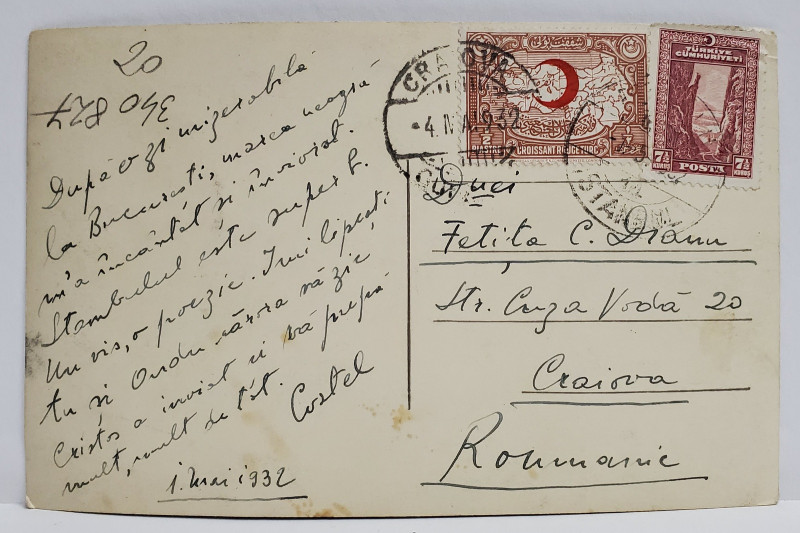 20
340 827
După o zi mizerabilă
la București, marea neagră
m'a încântat și înviorat.
Stambulul este superb.
Un vis, o poezie. Îmi lipsești
tu și Ovidiu cărora vă zic,
Cristos a inviat și vă pupă
mult, mult de tot.
Costel
1. Mai 1932
CRAIOVA
4. MAI. 932
CROISSANT ROUGE TURC
1/2
TÜRKİYE
CÜMHURİYETİ
7½ POSTA 7½
KURUŞ
ISTANBUL
D nei
Fetița C. Dianu
Str. Cuza Vodă 20
Craiova
Roumanie